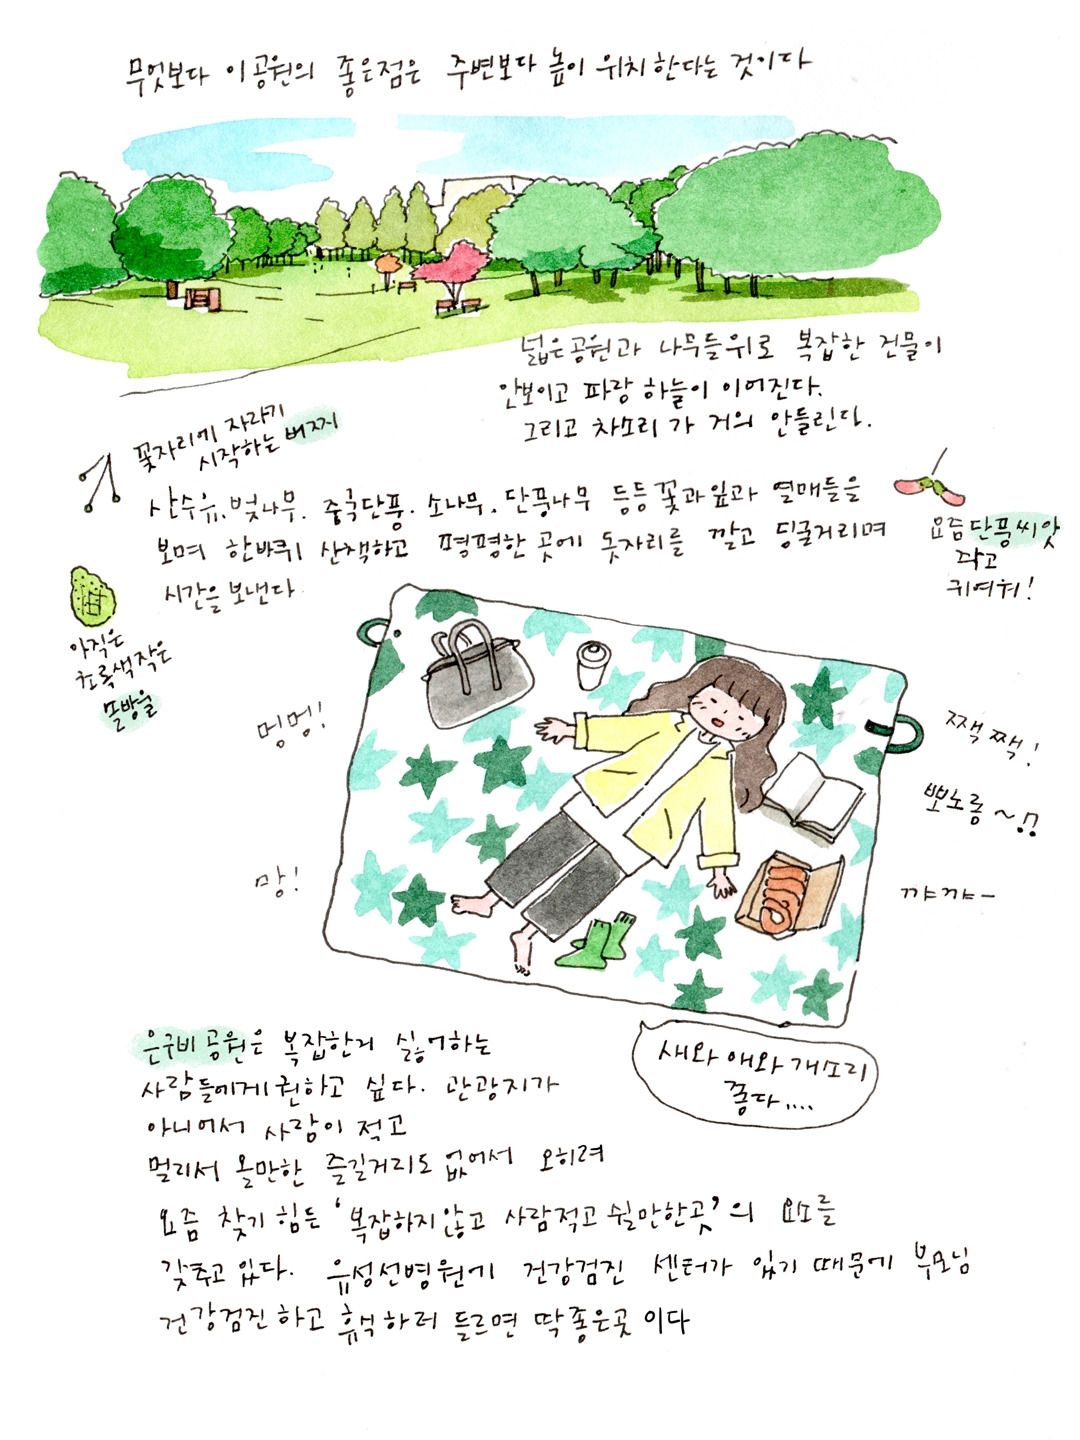 무엇보다 이공원의 좋은점은 주변보다 높이 위치한다는 것이다
넓은공원과 나무들위로 복잡한 건물이
안보이고 파랑 하늘이 이어진다.
그리고 차소리가 거의 안들린다.
꽃자리에 자라기
시작하는 버찌
산수유, 벚나무, 중국단풍, 소나무, 단풍나무 등등 꽃과잎과 열매들을
보며 한바퀴 산책하고 평평한 곳에 돗자리를 깔고 딩굴거리며
시간을 보낸다
요즘 단풍씨앗
작고
귀여워!
아직은
초록색 작은
솔방울
멍멍!
짹짹!
뽀노롱~♫
망!
꺄꺄-
새와 애와 개소리
좋다....
은구비 공원은 복잡한거 싫어하는
사람들에게 권하고 싶다. 관광지가
아니어서 사람이 적고
멀리서 올만한 즐길거리도 없어서 오히려
요즘 찾기 힘든 '복잡하지않고 사람적고 쉴만한곳'의 요소를
갖추고 있다. 유성선병원에 건강검진 센터가 있기 때문에 부모님
건강검진하고 휴식하러 들르면 딱좋은곳 이다